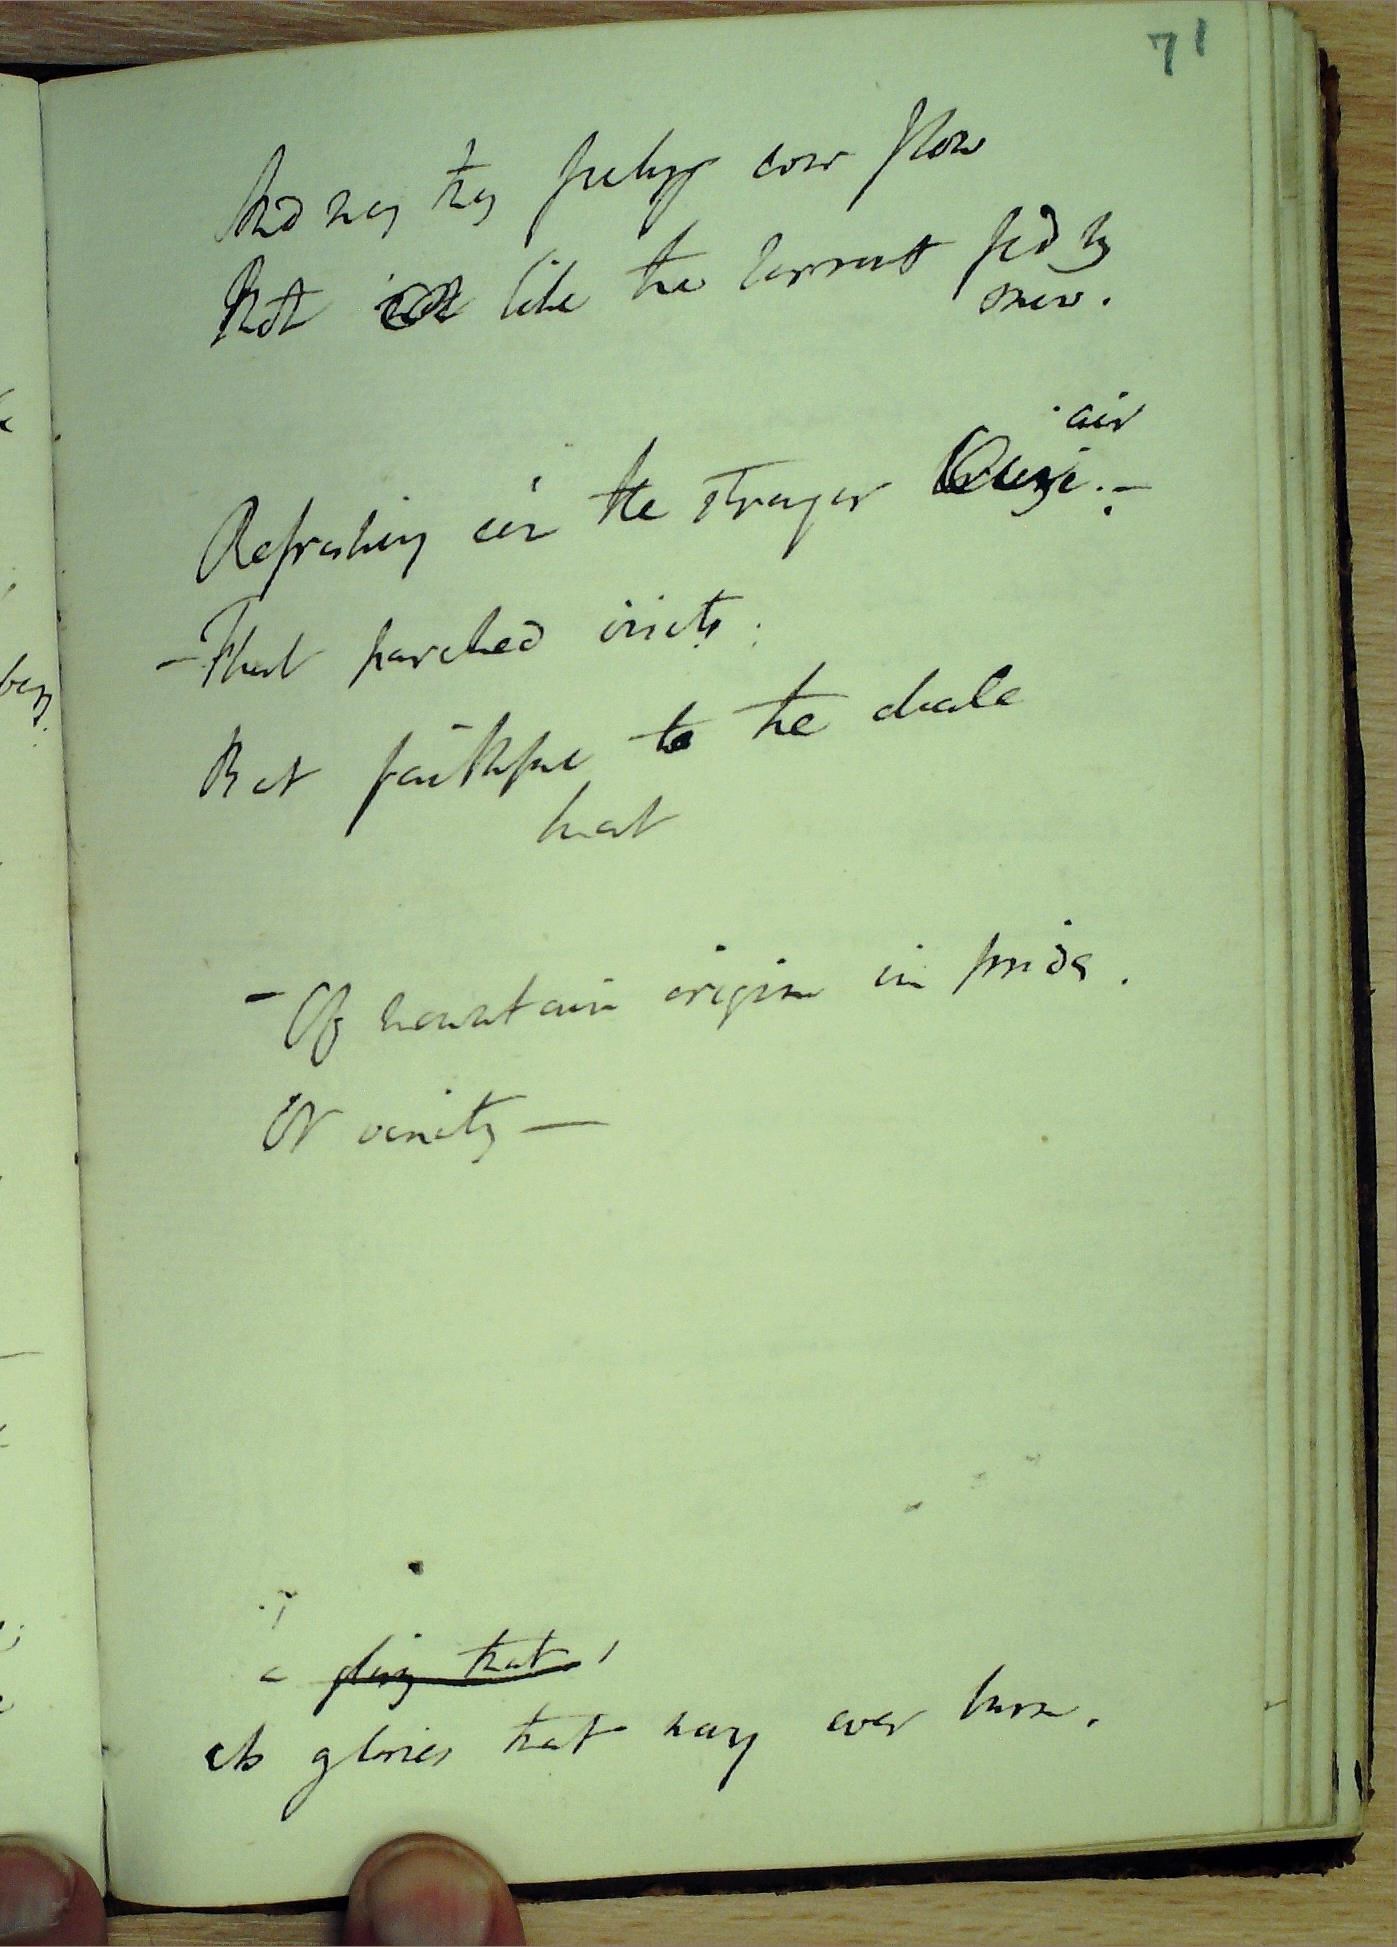 71
And may thy feelings ever flow
Not like the torrent fed by
snow.
air
Refreshing in the stranger
- That parched
But faithful to the
heat
- Of mountain origin in pride.
Or vanity —
a glory that
its glories that may ever burn.